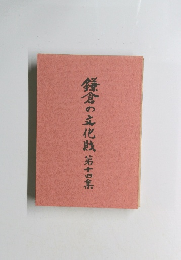 鎌倉の文化財第十四集